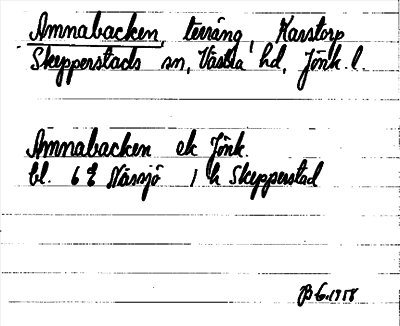 Ämnabacken, teräng, Karstorp
Skepperstads sn, Västra hd, Jönk. l.
Ämnabacken ek Jönk.
bl. 6 E Nässjö 1 h Skepperstad
1958